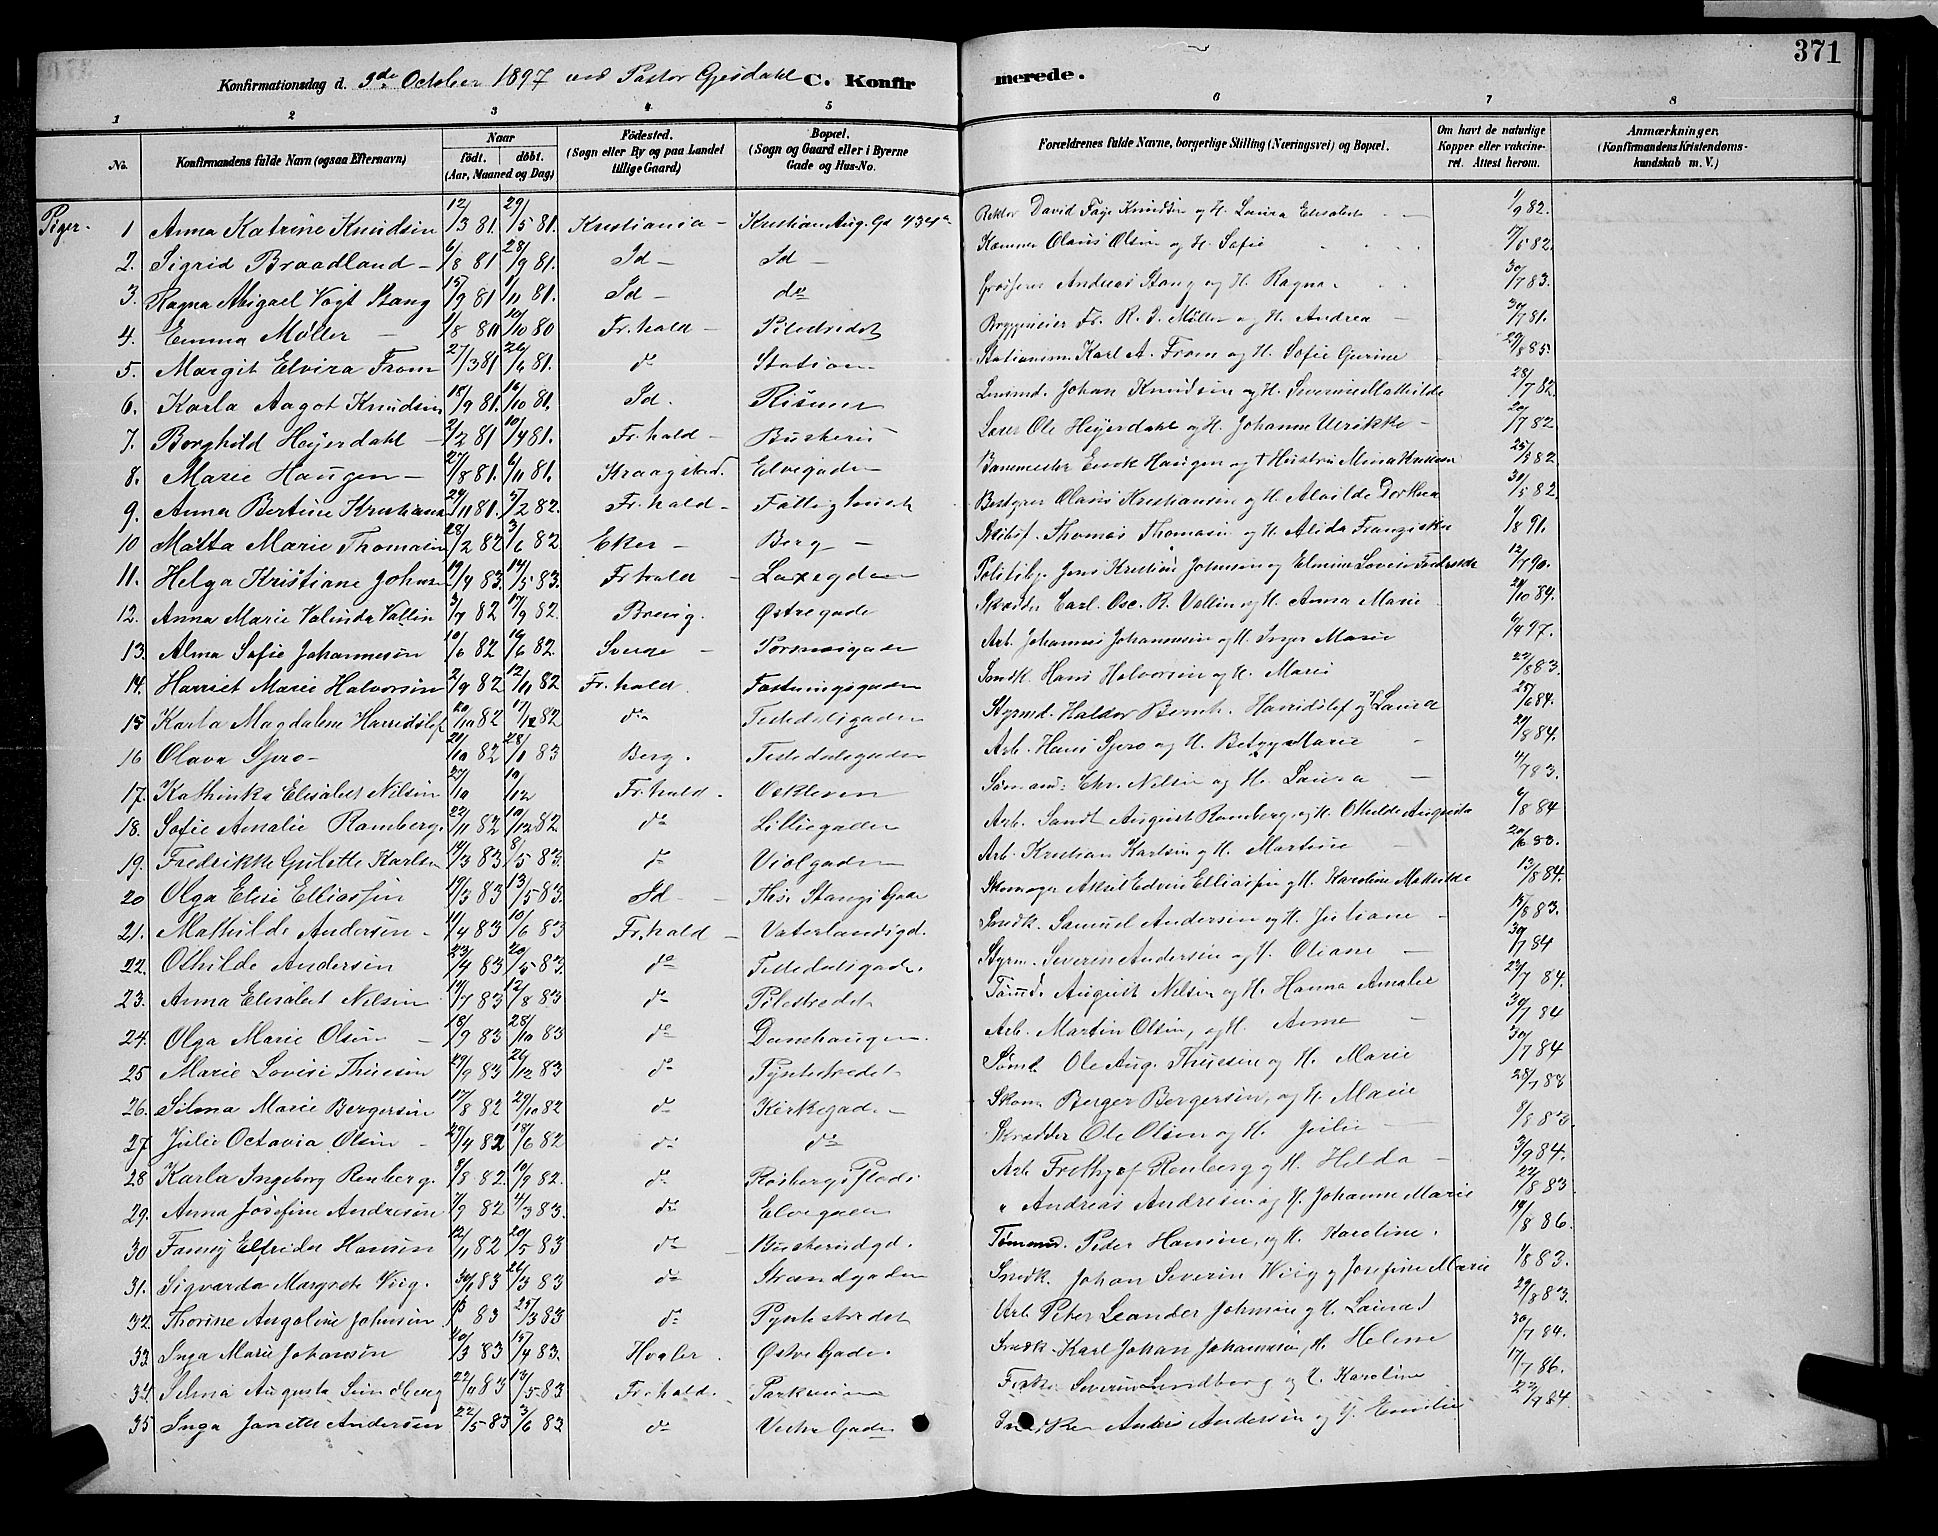 371
Konfirmationsdag d. 3de October 1897 ved Pastor Gjesdahl C. Konfirmerede.
1 2 3 4 5 6 7 8
No. Konfirmandens fulde Navn (ogsaa Efternavn) Naar født. døbt. (Aar, Maaned og Dag) Fødested. (Sogn eller By og paa Landet tillige Gaard) Bopæl. (Sogn og Gaard eller i Byerne Gade og Hus-No. Forældrenes fulde Navne, borgerlige Stilling (Næringsvei) og Bopæl. Om havt de naturlige Kopper eller vakcineret. Attest herom. Anmærkninger. (Konfirmandens Kristendomskundskab m. V.)
Piger.
1 Anna Katrine Knudsen 12/3 81 29/5 81. Kristiania Kristian Aug. Gd Rektor David Faye Knudsen og H. Laura Elisabet 1/9 82.
2. Sigrid Braadland 6/8 81 28/9 81. Id Id Kæmner Olaus Olsen og H. Sofie 7/5 82.
3. Ragna Abigael Vogt Stang 15/9 81 1/11 81. Id do Grosserer Andreas Stang og H. Ragna 30/7 83.
4. Emma Møller 1/8 80 10/10 80 Fr.hald Pilestredet Fr. R. J. Møller og H. Andrea 30/7 81.
5. Margit Elvira From 27/3 81 26/6 81. do Station Stationsm. Karl A. From og H. Sofie Gurine 29/8 85.
6. Karla Aagot Knudsen 18/9 81. 16/10 81. Id. Risum Lensmd. Johan Knudsen og H. Severine Mathilde 28/7 82.
7. Borghild Heyerdahl 21/2 81 10/4 81. Fr.hald Buskerud Ole Heyerdahl og H. Johanne Ulrikke 20/7 82
8. Marie Haugen 27/8 81. 6/11 81. Kraagstad. Elvegaden Banemester Enok Haugen og † Hustru Mina Knudsen 25/5 82
9. Anna Bertine Kristiansen 29/11 81. 5/2 82. Fr.hald Fattighuset Bestyrer Olaus Kristiansen og H. Alvilde Dorthea 30/5 82.
10 Malta Marie Thomasen 28/2 82 3/6 82 Eker Berg Thomas Thomasen og H. Alida Franziska 1/8 91.
11. Helga Kristiane Johnsen 19/4 83. 14/5 83. Fr.hald Laxegaden Politibj. Jens Kristian Johnsen og Elmine Lovise 12/7 90.
12. Anna Marie Valinda Vallin 3/7 82 17/9 82. Brevig. Østregade Skrædder Carl. Osc. R. Vallin og H. Anna Marie 24/10 84.
13. Alma Sofie Johannesen 10/6 82 19/6 82. Sverge Porsnesgaden Arb. Johannes Johannesen og H. Inger Marie 6/4 97.
14. Harriet Marie Halvorsen 2/9 82 12/11 82 Fr.hald. Fæstningsgaden Snedk. Hans Halvorsen og H. Marie 22/8 83.
15 Karla Magdalene Harridslef 20/10 82 17/12 82 do Tistedalsgaden Styrmd. Haldor Bernh. Harridslef og H. Laura 25/6 84.
16 Olava Spro 20/10 82 28/1 83 Berg. Tistedalsgaden Arb. Hans Spro og H. Betzy Marie 21/8 84.
17. Kathinka Elisabet Nilsen 27/10 10/12 Fr.hald. Oskleven Sømand: Chr. Nilsen og H. Laura 4/7 83.
18. Sofie Amalie Ramberg. 22/11 82 10/12 82 do Lilliegaden Arb. Sandt August Ramberg og H. Othilde Augusta 6/8 84
19. Fredrikke Gulette Karlsen 14/3 83 8/5 83. do Violgaden Arb. Kristian Karlsen og H. Martine 20/6 83.
20 Olga Elise Elliassen 19/3 83 13/5 83. Id Ths. Stangs Gade Skomager Aksel Edvin Elliassen og H. Karoline Mathilde 13/8 84.
21. Mathilde Andersen 11/4 83 10/6 83 Fr.hald Vaterlandsgd. Snedk. Samuel Andersen og H. Juliane 13/8 83.
22. Othilde Andersen 23/4 83 20/5 83. do Tistedalsgaden. Styrm. Severin Andersen og H. Oliane 30/7 84
23. Anna Elisabet Nilsen 19/7 83 12/8 83 do Pilestredet Tømd. August Nilsen og H. Hanna Amalie 23/7 84.
24. Olga Marie Olsen 18/9 83 28/10 83 do Damhaugen. Arb. Martin Olsen, og H. Anne 30/7 84
25 Marie Lovise Thuesen 29/9 83 26/12 83 do Tyskestredet Sømd. Ole Aug. Thuesen og H. Marie 30/7 84
26. Silma Marie Bergersen 17/8 82 29/10 82 do Kirkegaden Skom. Berger Bergersen, og H. Marie 28/7 83
27 Julie Octavia Olsen 29/4 82 18/6 82 do do Skrædder Ole Olsen og H. Julie 9/8 83.
28 Karla Ingeborg Renberg. 9/8 82. 10/9 82. do Rødsbergs Plads Arb Frithjof Renberg og H. Hilda 3/9 84.
29. Anna Josefine Andresen 7/9 82 4/3 83. do Elvegaden " Andreas Andresen og H. Johanne Marie 22/8 83.
30 Fanny Elfrida Hansen 12/11 82 20/5 83 do Buskerudgd. Tømmerm. Peder Hansen, og H. Karoline. 19/8 86.
31. Sigvarda Margrete Wiig. 30/1 83 26/3 83 do Strandgaden Snedk. Johan Severin Wiig og Josefine Marie 1/8 83.
32. Thorine Angoline Johnsen 83 25/3 83 do Tyskestredet Arb. Peter Leander Johnsen og H. Laura 29/8 83.
33. Inga Marie Johansen 20/3 83 15/4 83. Hvaler. Østre Gade. Snedk. Karl Johan Johannesen, H. Helene 30/7 84.
34. Silma Augusta Lundberg 22/4 83 13/5 83 Fr.hald. Parkveien Fisker Severin Lundberg og H. Karoline 17/7 86.
35 Inga Janette Andersen 22/5 83 3/6 83 do Vestre Gade Snedker Anders Andersen og H. Emilie 22/7 84.